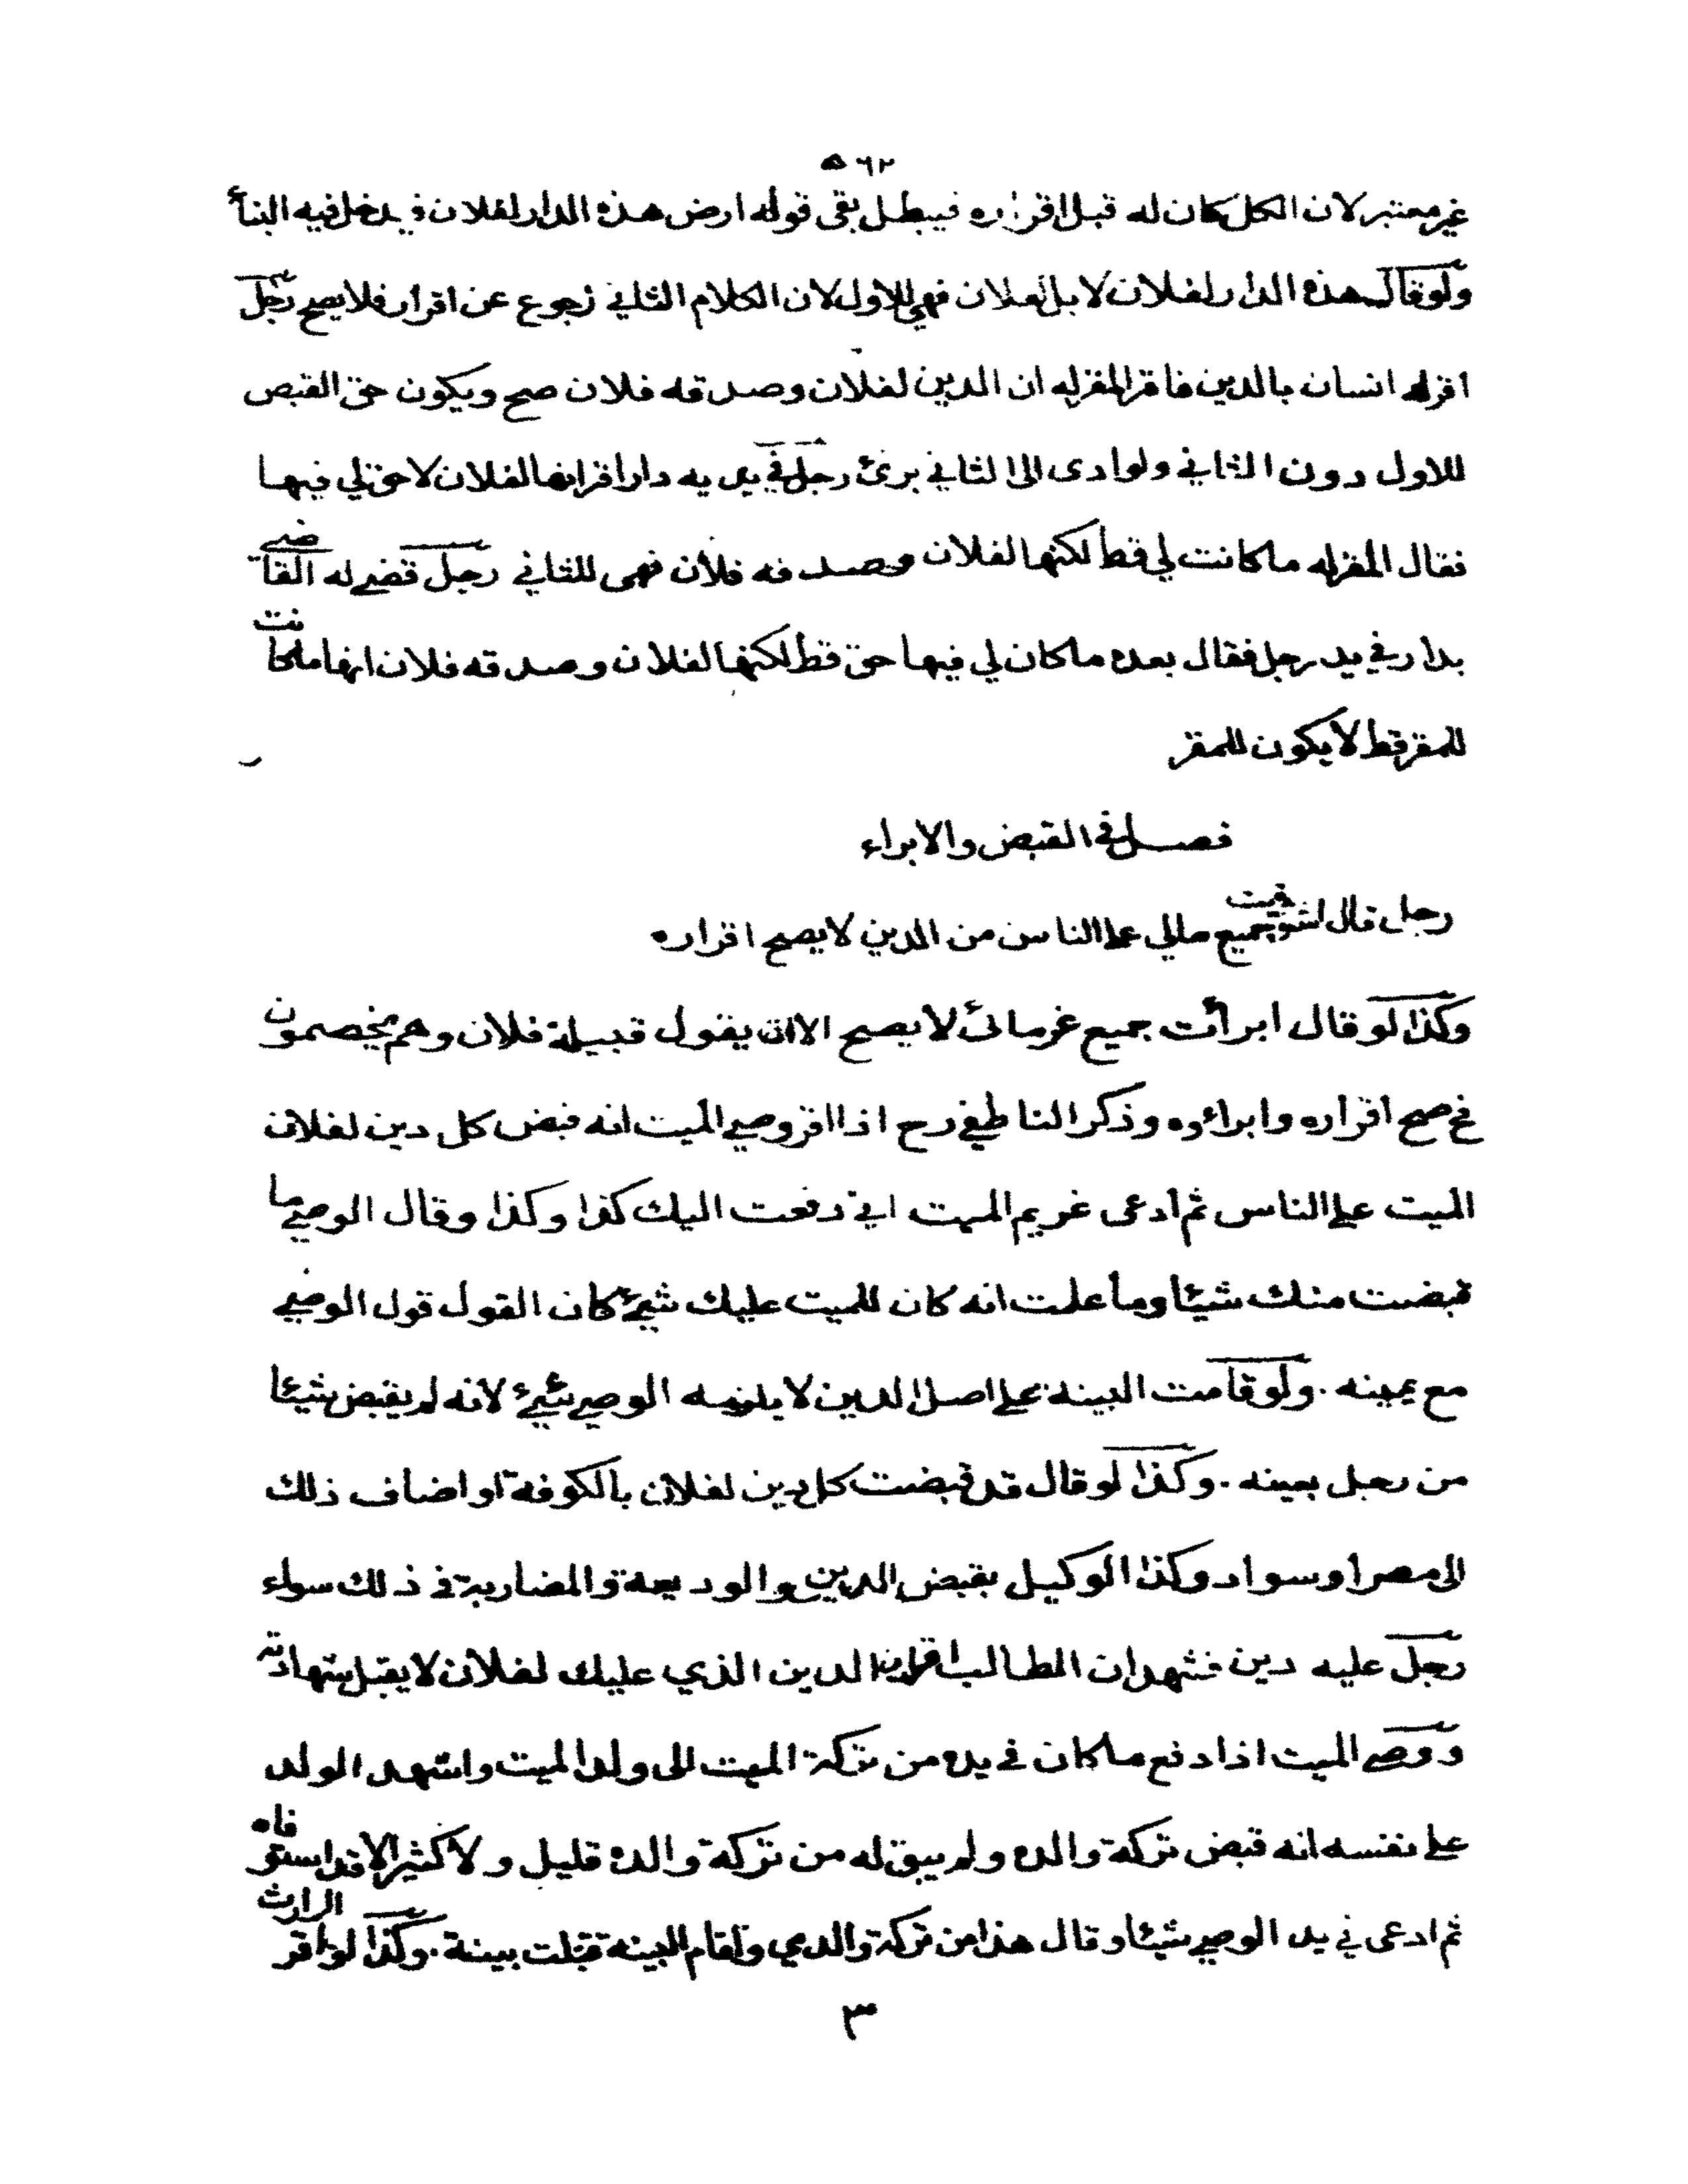 ٥٦٢
غير معتبر لان الكل كان له قبل اقراره فيبطل بقى قوله ارض هذه الدار لفلان فيدخل فيه البنأ
ولو قال هذه الدار لفلان لا بل لفلان فهي للاول لان الكلام الثاني رجوع عن اقرار فلا يصح رجل
اقر له انسان بالدين فاقر المقر له ان الدين لفلان وصدقه فلان صح ويكون حق القبض
للاول دون الثاني ولو ادى الى الثاني برئ رجل في يديه دار اقر انها لفلان لا حق لي فيها
فقال المقر له ما كانت لي قط لكنها لفلان وصدقه فلان فهي للثاني رجل قضى له القاضي
بدار في يد رجل فقال بعده ما كان لي فيها حق قط لكنها لفلان وصدقه فلان انها ما كانت
للمقر قط لا يكون للمقر
فصل في القبض والابراء
رجل قال استوفيت جميع مالي على الناس من الدين لا يصح اقراره
وكذا لو قال ابرأت جميع غرمائ لا يصح الا ان يقول قبيلة فلان وهم يخصمون
فح صح اقراره وابراؤه وذكر الناطفي رح اذا اقر وصي الميت انه قبض كل دين لفلان
الميت على الناس ثم ادعى غريم الميت اني دفعت اليك كذا وكذا وقال الوصي ما
قبضت منك شيئا وما علمت انه كان للميت عليك شيئ كان القول قول الوصي
مع يمينه . ولو قامت البينة على اصل الدين لا يلزمه الوصي شيئ لانه لم يقبض شيئا
من رجل بعينه . وكذا لو قال قد قبضت كل دين لفلان بالكوفة او اضاف ذلك
الى مصر او سواد وكذا الوكيل بقبض الدين والوديعة والمضاربة في ذلك سواء
رجل عليه دين فشهد ان الطالب اقر ان الدين الذي عليك لفلان لا يقبل شهادته
ووصي الميت اذا دفع ما كان في يده من تركة الميت الى ولد الميت واشهد الولد
على نفسه انه قبض تركة والده ولم يبق له من تركة والده قليل ولا كثير الا قد استوفاه
ثم ادعى في يد الوصي شيئا وقال هذا من تركة والدي واقام البينة قبلت بينة . وكذا لو اقر الوارث
٣